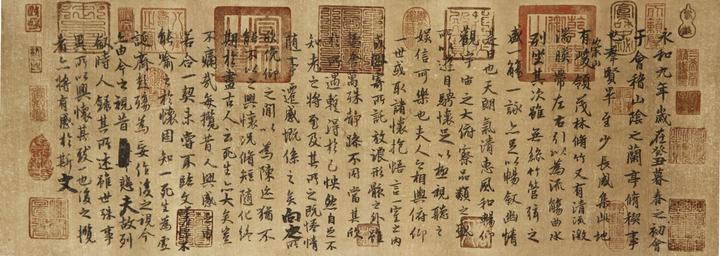 永和九年歲在癸丑暮春之初會
于會稽山陰之蘭亭脩稧事
也羣賢畢至少長咸集此地
有崇山峻領茂林脩竹又有清流激
湍暎帶左右引以為流觴曲水
列坐其次雖無絲竹管弦之
盛一觴一詠亦足以暢敘幽情
是日也天朗氣清惠風和暢仰
觀宇宙之大俯察品類之盛
所以遊目騁懷足以極視聽之
娛信可樂也夫人之相與俯仰
一世或取諸懷抱悟言一室之內
或因寄所託放浪形骸之外雖
趣舍萬殊靜躁不同當其欣
於所遇暫得於己怏然自足不
知老之將至及其所之既惓情
隨事遷感慨係之矣向之所
欣俛仰之間以為陳迹猶不
能不以之興懷況脩短隨化終
期於盡古人云死生亦大矣豈
不痛哉每攬昔人興感之由
若合一契未嘗不臨文嗟悼不
能喻之於懷固知一死生為虛
誕齊彭殤為妄作後之視今
亦由今之視昔悲夫故列
敘時人錄其所述雖世殊事
異所以興懷其致一也後之攬
者亦將有感於斯文